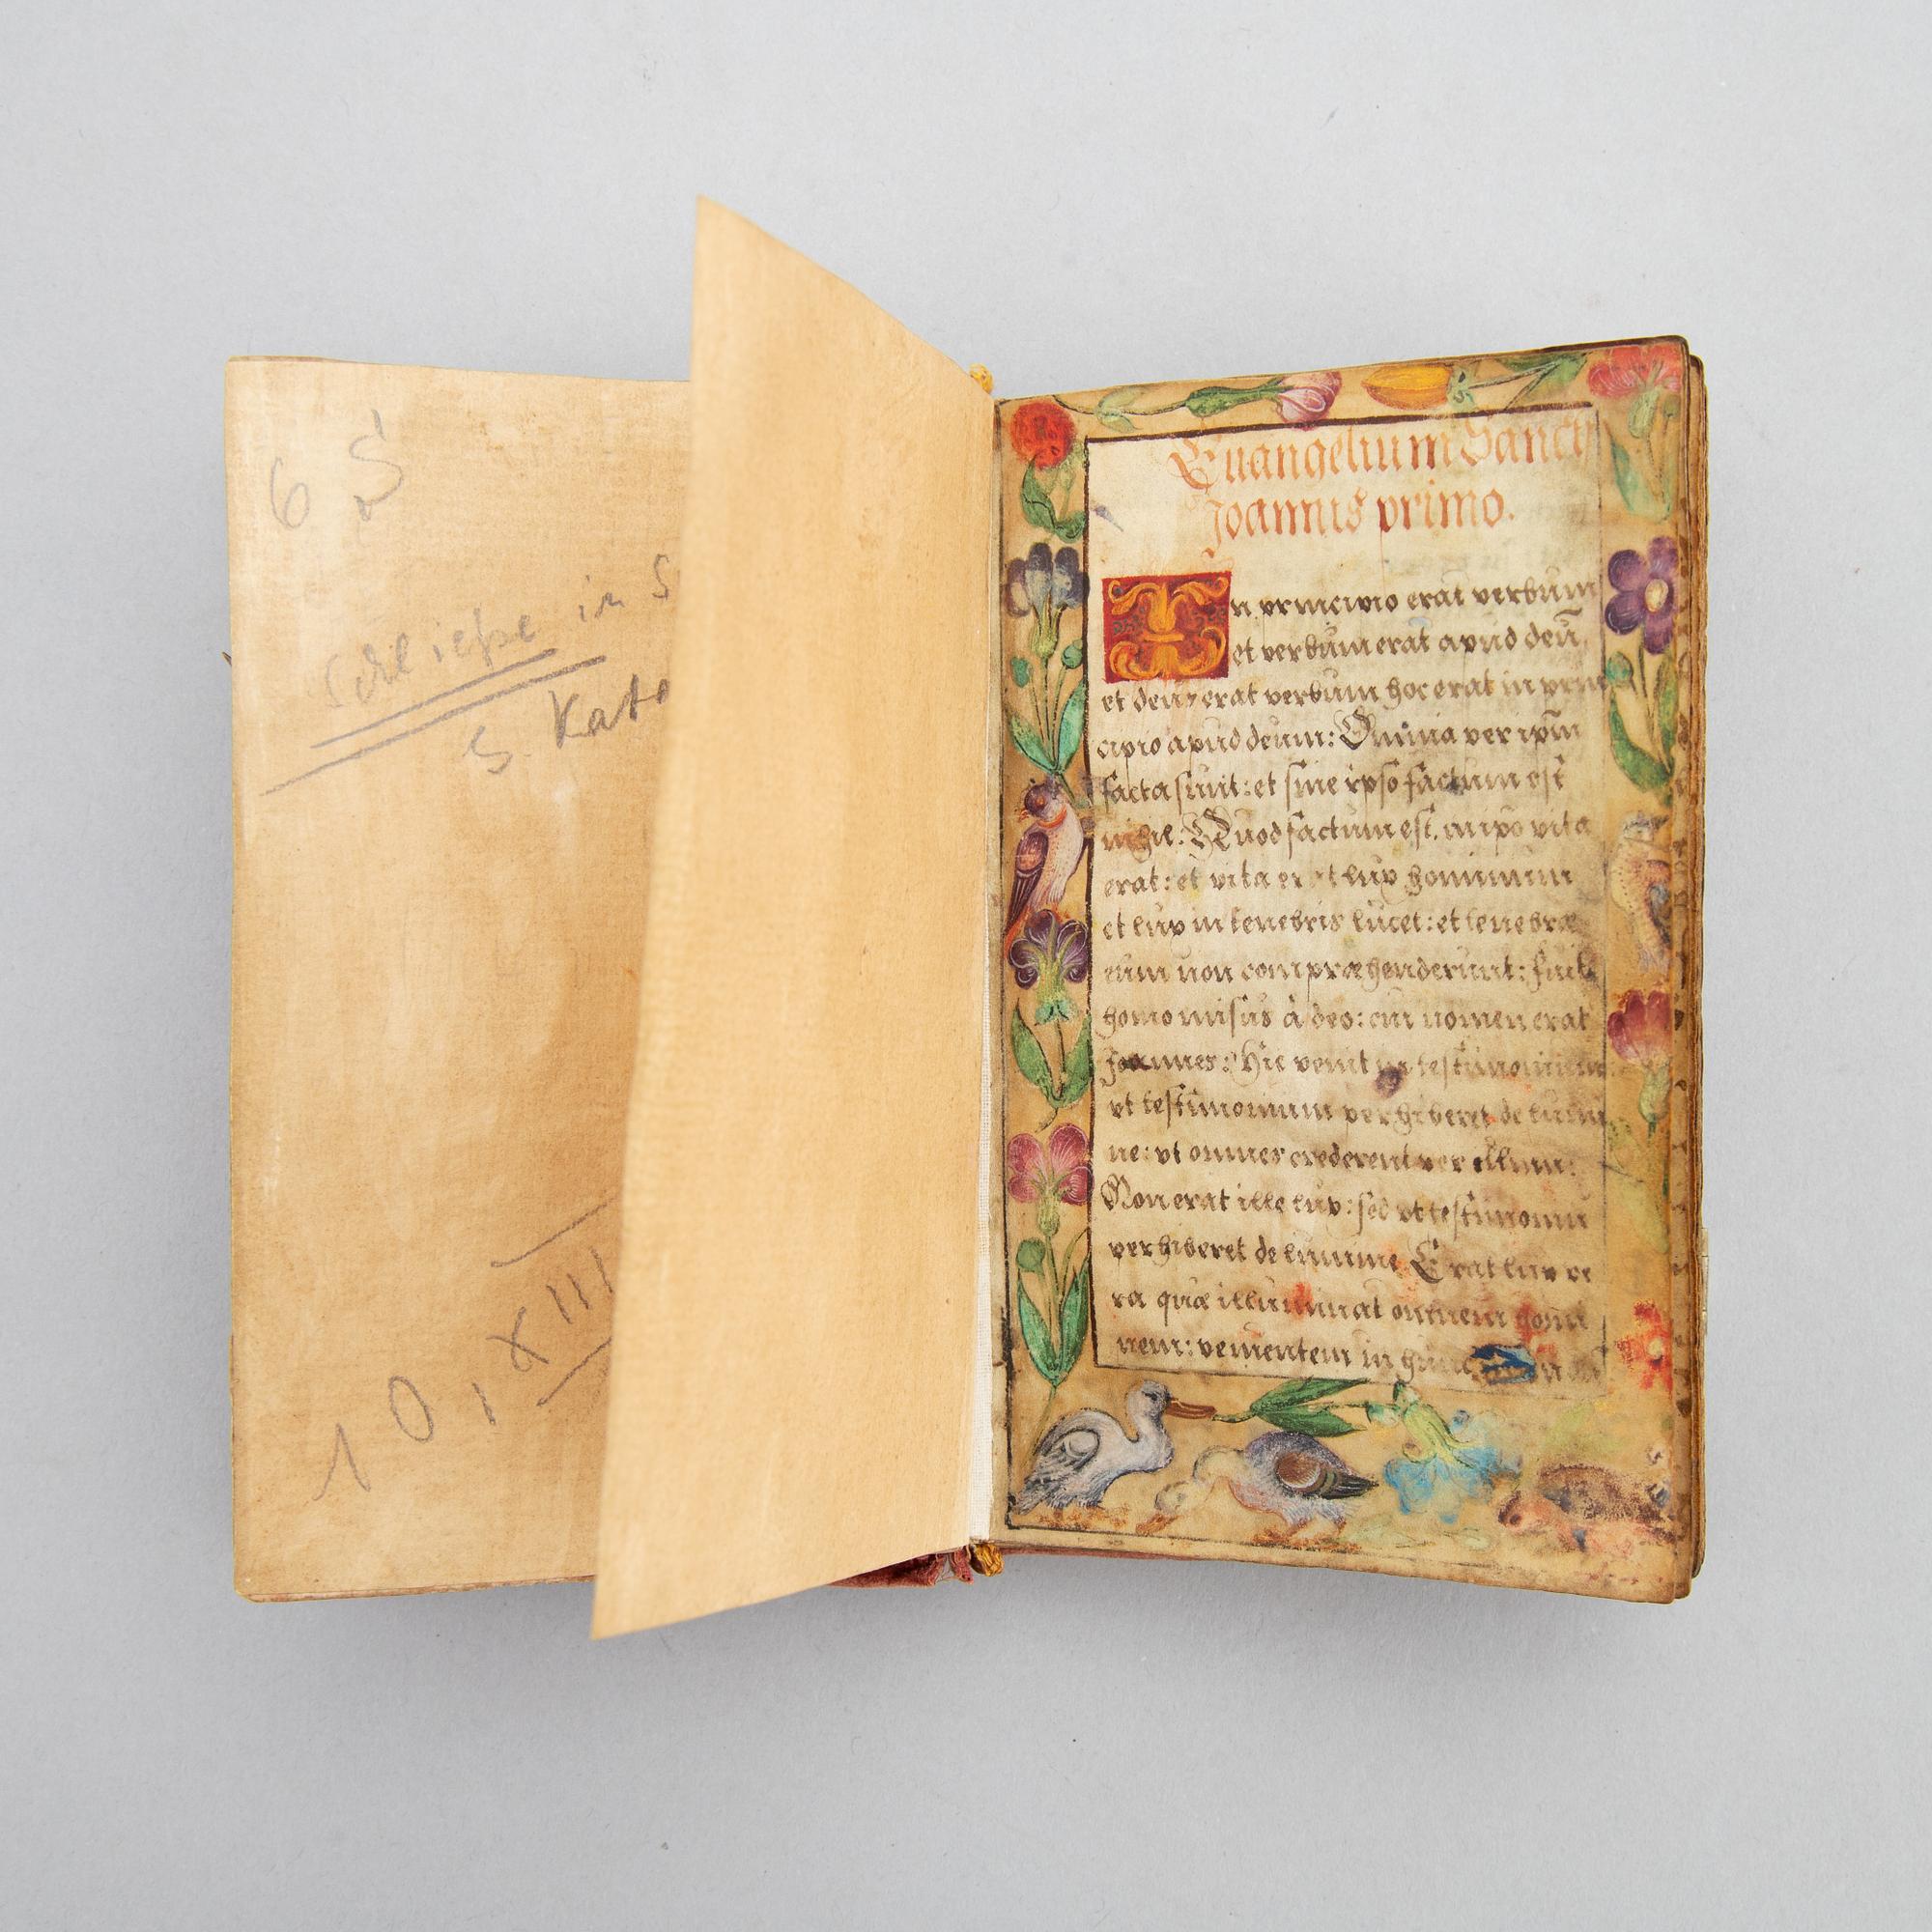 6 S
Schließe in S
S. Kat
XIII
10,
Euangelium Sancti
Joannis primo.
In principio erat verbum
et verbum erat apud deū,
et deus erat verbum hoc erat in prin
cipio apud deum: Omnia per ipm̄
facta sunt: et sine ipso factum est
nihil: Quod factum est, in ipo vita
erat: et vita erat lux hominum
et lux in tenebris lucet: et tenebræ
eum non compræhenderunt: fuit
homo missus à deo: cui nomen erat
Joannes: Hic venit in testimonium
vt testimonium perhiberet de lumi
ne: vt omnes crederent per illum:
Non erat ille lux: sed vt testimoniū
perhiberet de lumine Erat lux ve
ra quæ illuminat omnem homi
nem: venientem in hunc